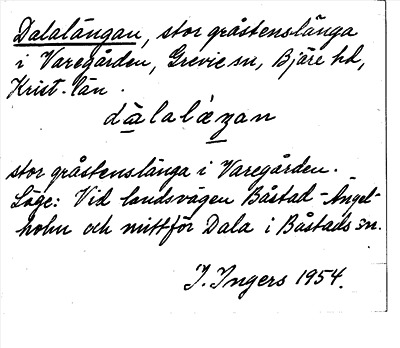 Dalalängan, stor gråstenslänga
i Varegården, Grevie sn, Bjäre hd,
Krist. län.
dàlaláŋan
stor gråstenslänga i Varegården.
Läge: Vid landsvägen Båstad - Ängel-
holm och mittför Dala i Båstads sn.
I. Ingers 1954.